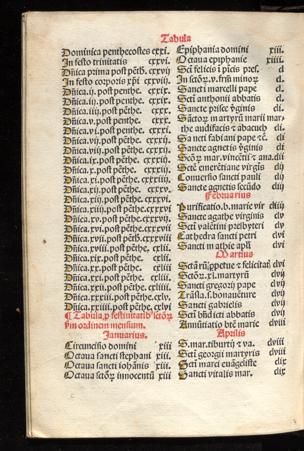 Tabula
Dominica penthecostes cxxi.
In festo trinitatis cxxvi.
Dñica prima post pēth. cxxvij
In festo corporis xp̄i cxxvij
Dñica.ij. post penthe. cxxix.
Dñica.iij. post pēthe. cxxx.
Dñica.iiij. post pēthe. cxxx.
Dñica.v. post penthe.
Dñica.vi. post penthe.
Dñica.vij. post pēthe.
Dñica.viij. post pēthe.
Dñica.ix. post penthe.
Dñica.x. post penthe.
Dñica.xi. post penthe.
Dñica.xij. post pēthe.
Dñica.xiij. post pēthe.
Dñica.xiiij. post pēthe.
Dñica.xv. post pēthe.
Dñica.xvi. post pēthe.
Dñica.xvii. post pēth.
Dñica.xviii. post pēthe.
Dñica.xix. post pēthe. cxlii.
Dñica.xx. post pēthe. cxlii.
Dñica.xxi. post pēthe.
Dñica.xxii. post pēthe.
Dñica.xxiii. post pēthe. cxlv.
Dñica.xxiiii. post pēthe. cxlvi
¶ Tabula ꝓ festiuitatib⁹ sctōꝝ
ẜm ordinem mensium.
Januarius.
Circuncisio domini xiii
Octaua sancti stephani xiii.
Octaua sancti iohānis xiii.
Octaua sctōꝝ innocentū xiii
Epiphania domini xiii.
Octaua epiphanie xiiii.
Scti felicis i pīcis pres. d
In sctōꝝ.v. frm̄ minoꝝ d.
Sancti marcelli pape d.
Scti anthonii abbatis d.
Sancte prisce v̄ginis di.
Sāctoꝝ martyrū marii mar
tha audifacis ⁊ abacuch di.
Sanctor fabiani pape
Sancte agnetis v̄ginis di
Sctōꝝ mar. vincētii ⁊ ana. dii
Scte emerētiane virgīs dij
Conuersio sancti pauli dij
Sancte agnetis secūdo diij
Februarius
Purificatio.b. marie vir diiij
Sancte agathe virginis dv
Scti valētini presbyteri dv
Cathedra sancti petri dvi
Sancti mathie apl̄i dvi
Martius
Sctāꝝ ꝑpetue ⁊ felicitat̄ dvi
Sctōꝝ.xl.martyrū dvij
Sancti gregorij pape dvij
Trāsla.f.bonauēture dvij
Sancti gabrielis dvij
Scti bn̄dicti abbatis dvij
Annūtiatio btē marie dviij
Aprilis
S.mar.tiburtij ⁊ va. dviii
Scti georgii martyris dviii
Scti marci euāgeliste dix
Sancti vitalis mar. dix